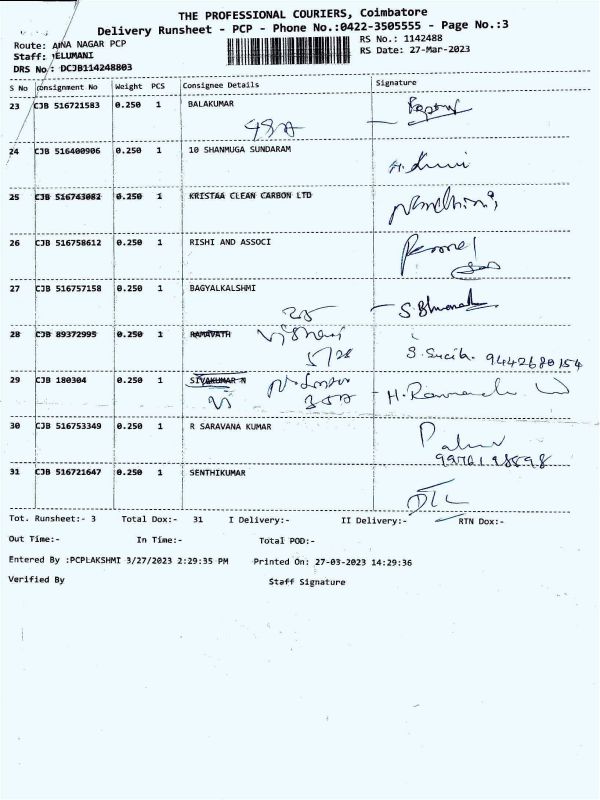 THE PROFESSIONAL COURIERS, Coimbatore
Delivery Runsheet - PCP - Phone No.:0422-3505555 - Page No.:3
Route: NAGAR PCP
RS No.: 1142488
Staff: ELUMANI
RS Date: 27-Mar-2023
DRS No : DCJB114248803
S No Consignment No Weight PCS Consignee Details Signature
23 CJB 516721583 0.250 1 BALAKUMAR
24 CJB 516400906 0.250 1 10 SHANMUGA SUNDARAM
25 CJB 516743082 0.250 1 KRISTAA CLEAN CARBON LTD
26 CJB 516758612 0.250 1 RISHI AND ASSOCI
27 CJB 516757158 0.250 1 BAGYALKALSHMI
28 CJB 89372995 0.250 1 RAMAVATH
9442680154
29 CJB 180304 0.250 1 SIVAKUMAR N
30 CJB 516753349 0.250 1 R SARAVANA KUMAR
31 CJB 516721647 0.250 1 SENTHIKUMAR
Tot. Runsheet:- 3 Total Dox:- 31 I Delivery:- II Delivery:- RTN Dox:-
Out Time:- In Time:- Total POD:-
Entered By :PCPLAKSHMI 3/27/2023 2:29:35 PM Printed On: 27-03-2023 14:29:36
Verified By Staff Signature